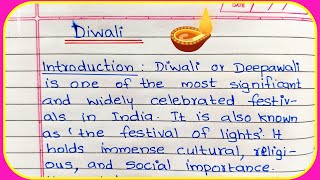 DATE
Diwali
Introduction : Diwali or Deepawali
is one of the most significant
and widely celebrated festiv-
als in India. It is also known
as 'the festival of lights'. It
holds immense cultural, religi-
ous, and social importance.